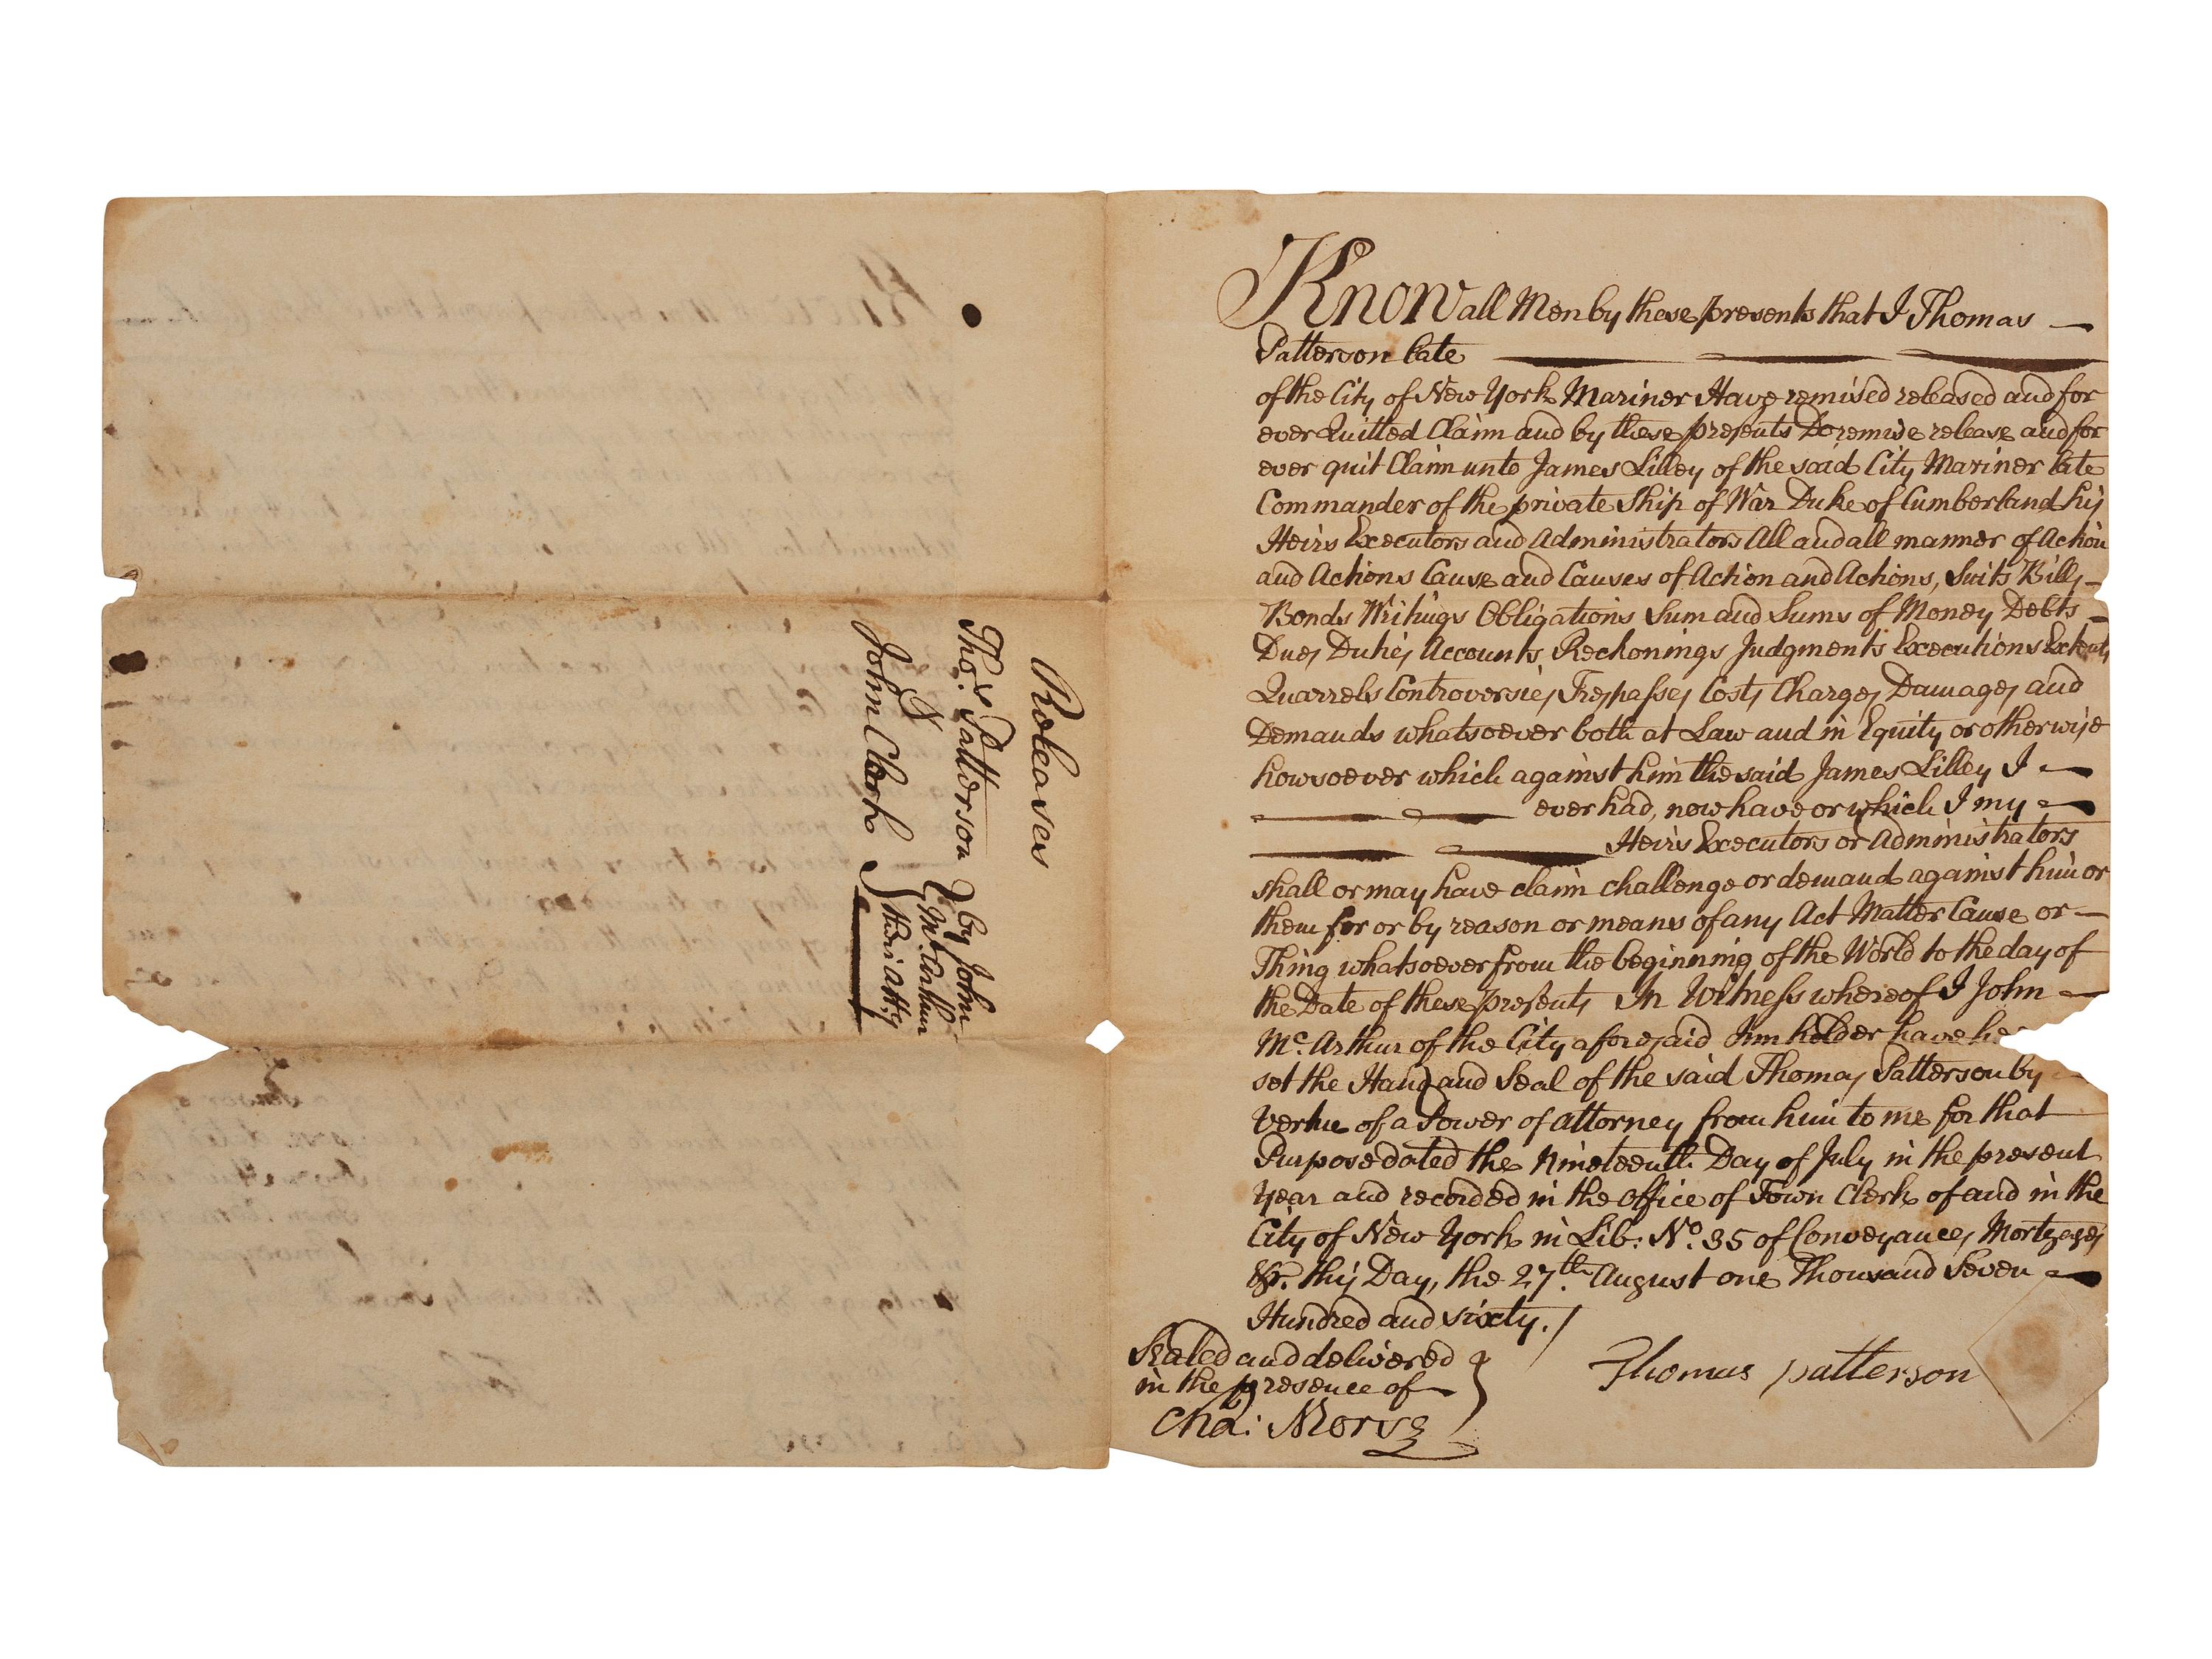 Releases
Thos. Patterson
&
John Clark
by John
McArthur
their Atty
Know all Men by these presents that I Thomas
Patterson late
of the City of New York Mariner Have remised released and for
ever Quitted Claim and by these presents Do remise release and for
ever quit Claim unto James Lilley of the said City Mariner late
Commander of the private Ship of War Duke of Cumberland his
Heirs Executors and Administrators All and all manner of Action
and Actions Cause and Causes of Action and Actions, Suits Bills
Bonds Writings Obligations Sum and Sums of Money Debts
Dues Duties Accounts Reckonings Judgments Executions Extents
Quarrels Controversies Trespasses Costs Charges Damages and
Demands whatsoever both at Law and in Equity or otherwise
howsoever which against him the said James Lilley I
ever had, now have or which I my
Heirs Executors or Administrators
shall or may have claim challenge or demand against him or
them for or by reason or means of any Act Matter Cause or
Thing whatsoever from the beginning of the World to the day of
the Date of these presents In Witness whereof I John
Mc. Arthur of the City aforesaid Innholder have
set the Hand and Seal of the said Thomas Patterson by
Vertue of a Power of Attorney from him to me for that
Purpose dated the Nineteenth Day of July in the present
Year and recorded in the Office of Town Clerk of and in the
City of New York in Lib: No. 35 of Conveyances Mortgages
&c. this Day, the 27th. August one Thousand Seven
Hundred and sixty.
Sealed and delivered
in the presence of
Thomas patterson
Cha: Morse